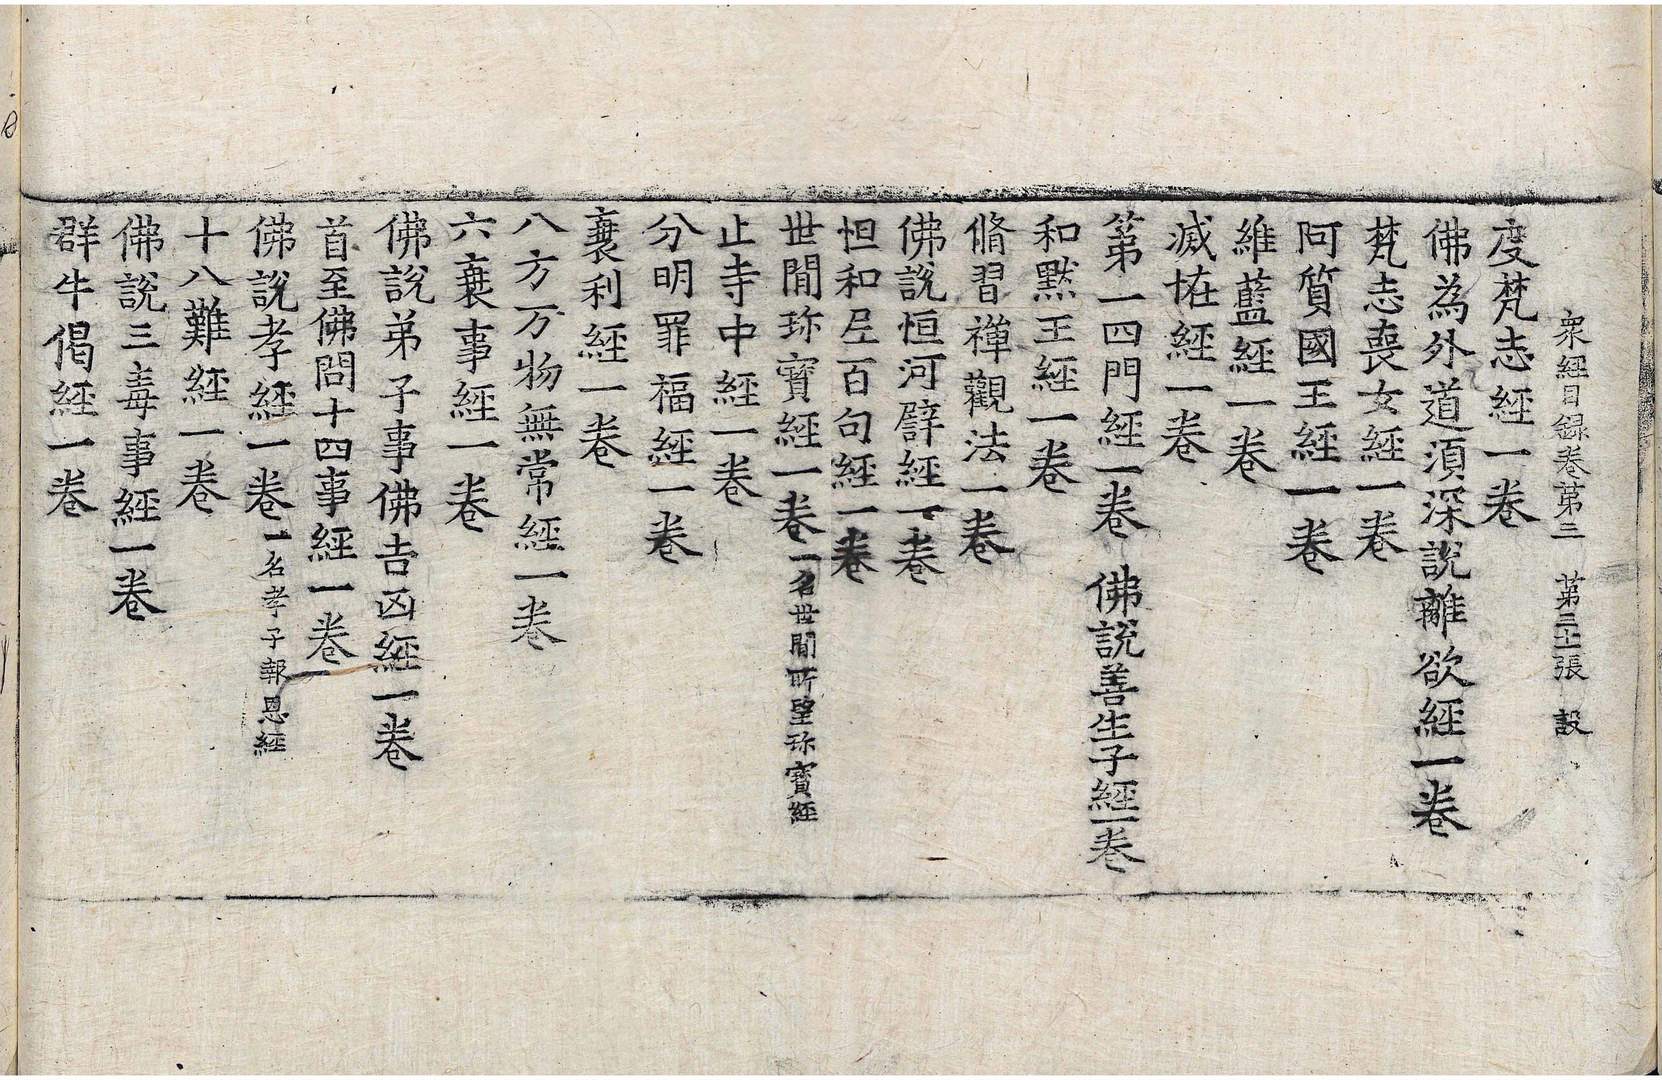 衆經目録卷第三　第三十二張　設
度梵志經一卷
佛為外道湏深說離欲經一卷
梵志喪女經一卷
阿質國王經一卷
維藍經一卷
滅恠經一卷
第一四門經一卷　佛說善生子經一卷
和黙王經一卷
脩習禪觀法一卷
佛說恒河譬經一卷
怛和尼百句經一卷
世間珎寶經一卷一名世間所望珎寶經
止寺中經一卷
分明罪福經一卷
衰利經一卷
八方万物無常經一卷
六衰事經一卷
佛說弟子事佛吉凶經一卷
首至佛問十四事經一卷
佛說孝經一卷一名孝子報恩經
十八難經一卷
佛說三毒事經一卷
群牛偈經一卷